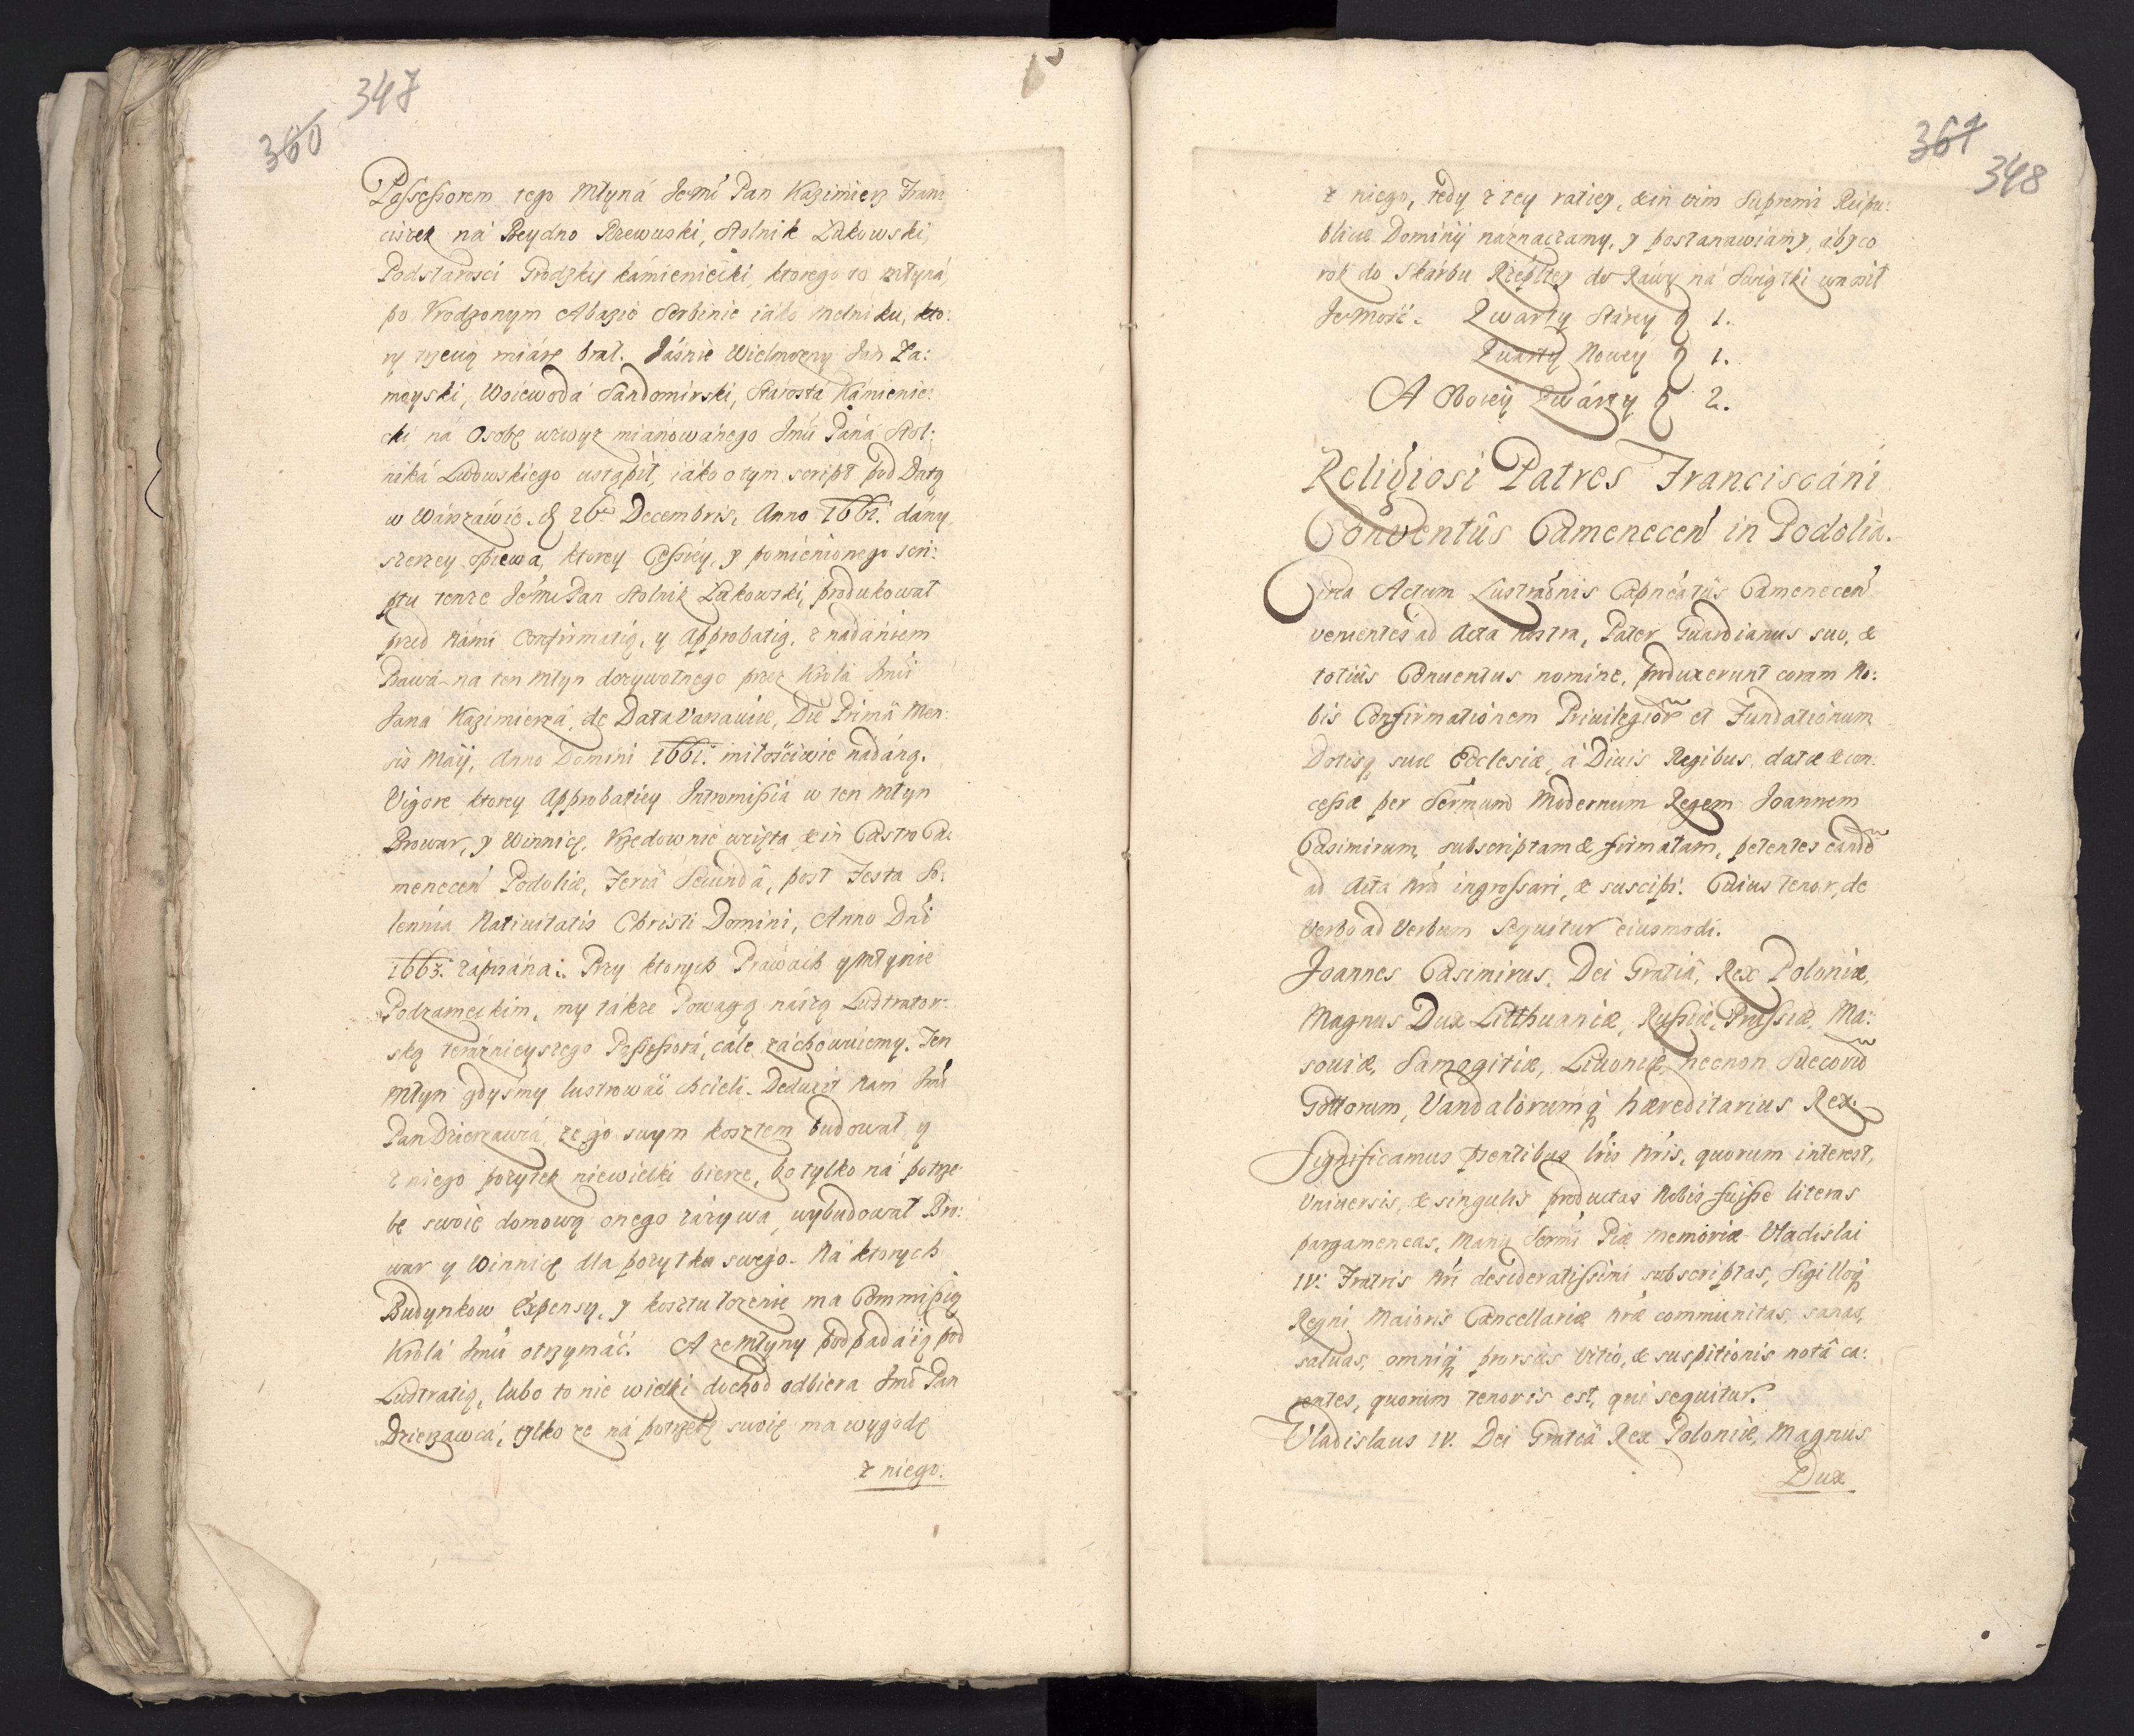 347
360
Possessorem tego Młyná JeoMć Pan Kazimierz Fran:
ciszek ná Beydno Rzewuski, Stolnik Lwowski,
Podstarosci Grodzky kámieniecki, ktorego to młyná,
po Vrodzonym Abazie Serbinie iáko Melniku, kto:
ry trzeuą miárę brał. Jáśnie Wielmozny Jan Za:
moyski, Woiewodá Sandomirski, Stárosta Kámienie:
cki ná Osobę uzwyż miánowánego Jmći Páná Stol:
niká Lwowskiego ustąpił, iáko o tym script pod Datą
w Wárszáwie. d 26 Decembris. Anno 1661. dány,
szerzey opiewa, ktorey Cessiey, y pomienionego scri:
ptu tenze JeoMć Pan Stolnik Lwowski, produkował
przed Námi Confirmatią, y Approbatią, z nadániem
Prawá na ten Młyn dozywotnego przez Krolá Jmći
Janá Kazimierzá, de Data Varsauiæ, Die Primâ Men:
sis Maÿ, Anno Domini 1661. miłościwie nádáną.
Vigore ktorey Approbatiey Intromissiá w ten Młyn
Browar, y Winnicę, Vrzędownie wzięta & in Castro Ca:
menecen Podoliæ, Feriâ Secundâ, post Festa So:
lennia Natiuitatis Christi Domini, Anno Dni
1663. zápisána. Przy ktorych Práwách y Młynie
Podzameckim, my tákze Powagą nászą Lustrator:
ską teráznieyszego Possessorá, cále záchowuiemy. Ten
Młyn gdysmy lustrowáć chcieli. Deduxit nam Jmć
Pan Dzierzawcá, ze go swym kosztem budował y
z niego pozytek niewielki bierze, bo tylko ná potrze:
bę swoię domową onego záżywa, wybudował Bro:
war y Winnicę dla pozytku swego. Ná ktorych
Budynkow Expensy, y kosztu łozenie ma Commissią
Krolá Jmći otrzymáć. A ze młyny podpadáią pod
Lustratią, lubo to nie wielki dochod odbiera Jmć Pan
Dzierzawcá, tylko ze ná potrzebę swoię ma wygodę
z niego.
361
348
z niego, tedy z tey ratiey, & in vim Supremi Reipu:
blicæ Dominij náznaczamy, y postanawiámy, áby co
rok do Skárbu Rzeplitey do Ráwy ná Swiątki wnosił
JeoMość. Kwárty Stárey f 1.
Kwárty Nowey f 1.
A Oboiey Kwárty f 2.
Religiosi Patres Franciscáni
Conventûs Camenecen in Podolia.
Circa Actum Lustraonis Capnéatûs Camenecen
venientes ad Acta nostra, Pater Guardianus suo, &
totius Conuentus nomine, produxerunt coram No:
bis Confirmationem Priuilegior et Fundationum
Dotisq suæ Ecclesiæ, à Diuis Regibus datæ & con:
cessæ per Sermum Modernum Regem Joannem
Casimirum subscriptam & firmatam, petentes eand
ad Acta nra ingrossari, & suscipi. Cuius tenor, de
Verbo ad Verbum sequitur eiusmodi.
Joannes Casimirus, Dei Gratiâ, Rex Poloniæ,
Magnus Dux Litthuaniæ, Russiæ, Prussiæ, Ma:
souiæ, Samogitiæ, Liuoniæ, necnon Suecoru
Gottorum, Vandalorumq hæreditarius Rex.
Significamus psentibus lris nris, quorum interest,
Vniuersis, & singulis productas Nobis fuisse literas
pargameneas, Manu Sermi Piæ memoriæ Vladislai
IV. Fratris nri desideratissimi subscriptas, Sigilloq
Regni Maioris Cancellariæ nræ communitas, sanas,
saluas, omniq prorsus vitio, & suspitionis notâ ca:
rentes, quorum tenoris est, qui sequitur.
Vladislaus IV. Dei Gratiâ Rex Poloniæ, Magnus
Dux